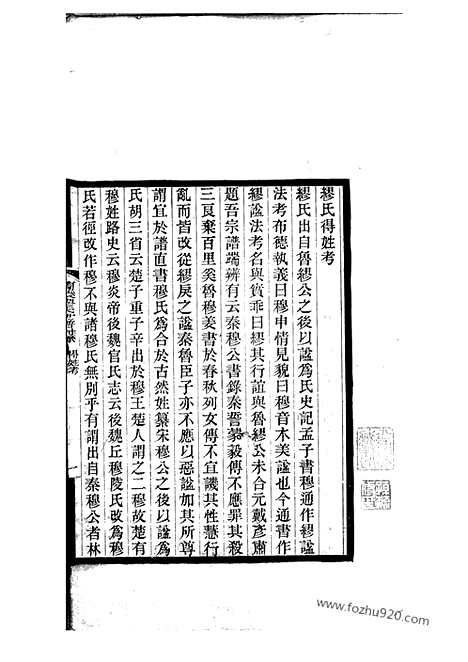 繆氏得姓考
繆氏出自魯繆公之後以諡爲氏史記孟子書穆通作繆諡
法考布德執義曰穆中情見貌曰穆音木美諡也今通書作
繆諡法考名與實乖曰繆其行誼與魯繆公未合元戴彥肅
題吾宗譜端辨有云秦穆公書錄秦誓蒙毅傅不應罪其殺
三良棄百里奚魯穆姜書於春秋列女傅不宜譏其性慧行
亂而皆改從繆戾之諡秦魯臣子亦不應以惡諡加其所尊
謂宜於譜直書穆氏爲合於古然姓纂宋穆公之後以諡爲
氏胡三省云楚子重子辛出於穆王楚人謂之二穆故楚有
穆姓路史云穆炎帝後魏官氏志云後魏丘穆陵氏改爲穆
氏若徑改作穆不與諸穆氏無別乎有謂出自秦穆公者林
得姓考
一
www.fozhu920.com